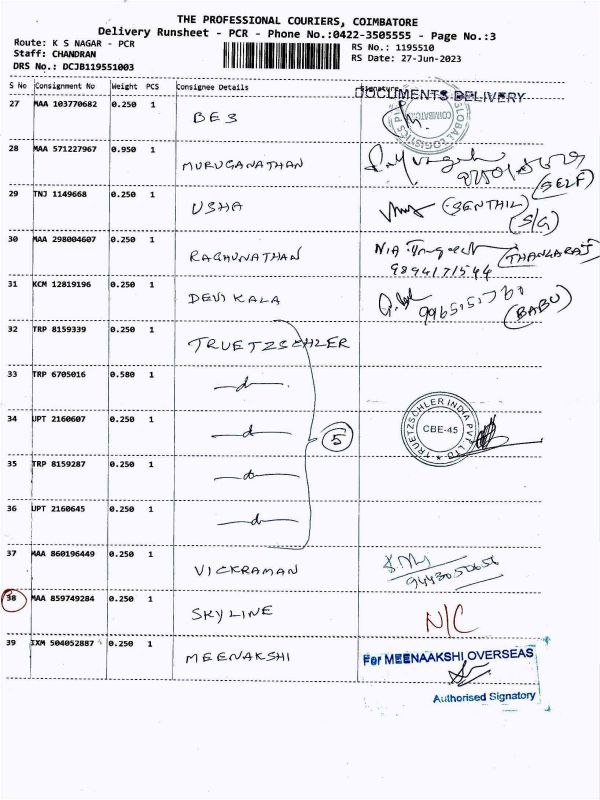 THE PROFESSIONAL COURIERS, COIMBATORE
Delivery Runsheet - PCR - Phone No.:0422-3505555 - Page No.:3
Route: K S NAGAR - PCR
RS No.: 1195510
Staff: CHANDRAN
RS Date: 27-Jun-2023
DRS No.: DCJB119551003
S No Consignment No Weight PCS Consignee Details Signature
DOCUMENTS DELIVERY
27 MAA 103770682 0.250 1 BES
28 MAA 571227967 0.950 1 MURUGANATHAN
(SELF)
29 TNJ 1149668 0.250 1 USHA (SENTHIL)
(S/G)
30 MAA 298004607 0.250 1 RAGHUNATHAN (THANGARAJ)
9894171544
31 KCM 12819196 0.250 1 DEVI KALA
(BABU)
32 TRP 8159339 0.250 1 TRUETZSCHLER
33 TRP 6705016 0.580 1 —d—
34 UPT 2160607 0.250 1 —d—
5
TRUETZSCHLER INDIA PVT. LTD
CBE-45
35 TRP 8159287 0.250 1 —d—
36 UPT 2160645 0.250 1 —d—
37 MAA 860196449 0.250 1 VICKRAMAN
9443050656
38 MAA 859749284 0.250 1 SKYLINE N/C
39 IXM 504052887 0.250 1 MEENAKSHI For MEENAAKSHI OVERSEAS
Authorised Signatory